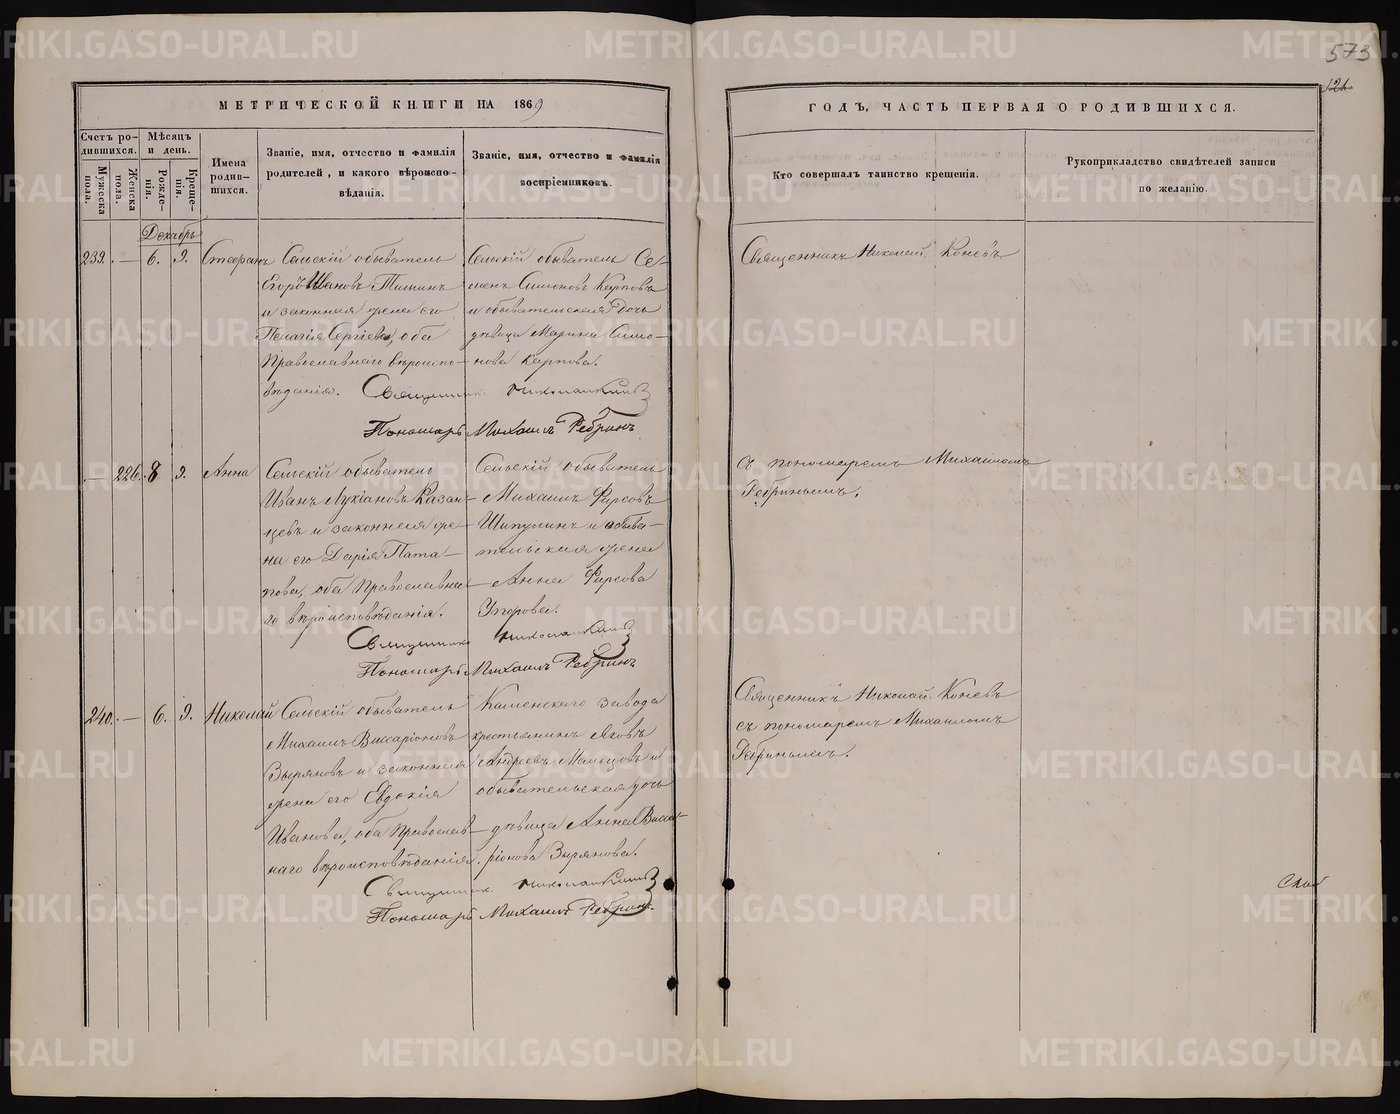 573
121
МЕТРИЧЕСКОЙ КНИГИ НА 1869
ГОДЪ, ЧАСТЬ ПЕРВАЯ О РОДИВШИХСЯ.
Счетъ родившихся.
Мужеска пола.
Женска пола.
Мѣсяцъ и день.
Рожденія.
Крещенія.
Имена родившихся.
Званіе, имя, отчество и фамилія родителей, и какого вѣроисповѣданія.
Званіе, имя, отчество и фамилія воспріемниковъ.
Кто совершалъ таинство крещенія.
Рукоприкладство свидѣтелей записи по желанію.
Декабрь
239. — 6. 9. Стефанъ
Сельскій обыватель
Егоръ Ивановъ Тишинъ
и законная жена его
Пелагія Сергіева, оба
Православнаго вѣроиспо-
вѣданія.
Сельскій обыватель Се-
менъ Симоновъ Карповъ
и обывательская дочь
дѣвица Марина Симо-
нова Карпова.
Священникъ Николай Коневъ
Священник Николай Конев
Пономарь Михаилъ Ребринъ
— 226. 8 9. Анна
Сельскій обыватель
Иванъ Лукіановъ Казан-
цевъ и законная же-
на его Дарія Пата-
пова, оба Православна-
го вѣроисповѣданія.
Сельскій обыватель
Михаилъ Фирсовъ
Шипунинъ и обыва-
тельская жена
Анна Фирсова
Упорова.
съ пономаремъ Михаиломъ
Ребринымъ.
Священник Николай Конев
Пономарь Михаилъ Ребринъ
240. — 6. 9. Николай
Сельскій обыватель
Михаилъ Виссаріоновъ
Зыряновъ и законная
жена его Евдокія
Иванова, оба Православ-
наго вѣроисповѣданія.
Каменскаго завода
крестьянинъ Яковъ
Андреевъ и
обывательская дочь
дѣвица Анна Висса-
ріонова Зырянова.
Священникъ Николай Коневъ
съ пономаремъ Михаиломъ
Ребринымъ.
Священник Николай Конев
Пономарь Михаилъ Ребринъ.
METRIKI.GASO-URAL.RU